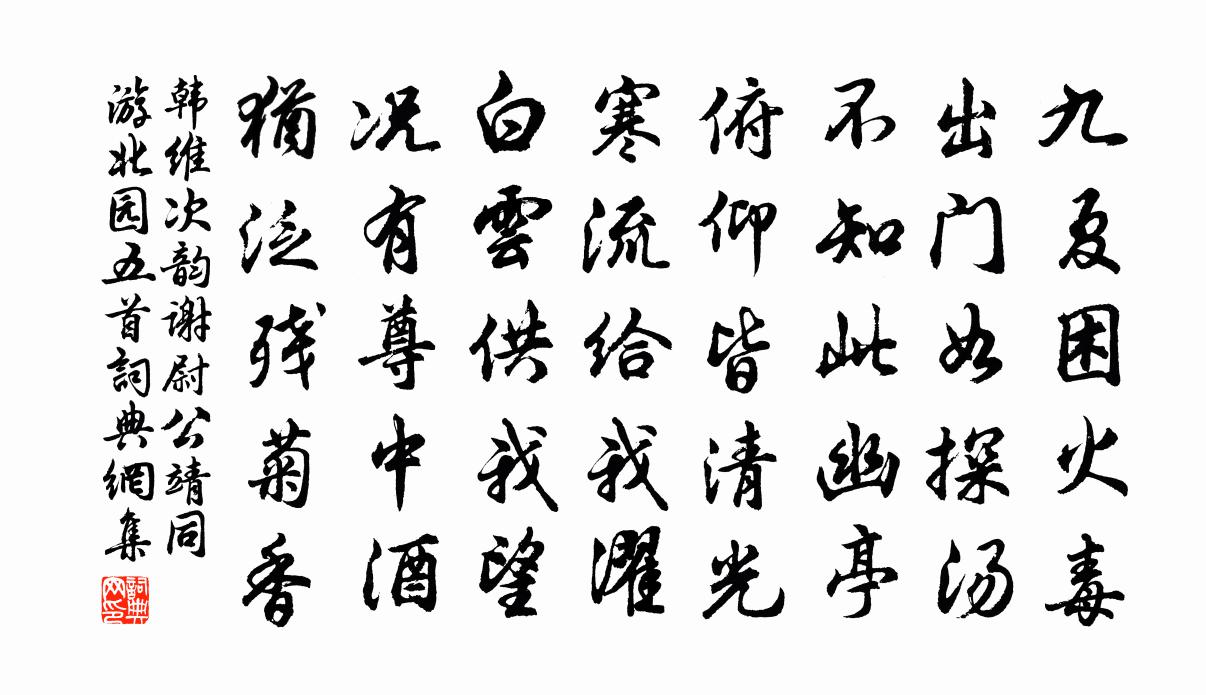 九夏困火毒
出门如探汤
不知此幽亭
俯仰皆清光
寒流给我濯
白雲供我望
况有尊中酒
猶泛残菊香
韩维次韵谢尉公靖同
游北园五首詞典網集
詞典网印